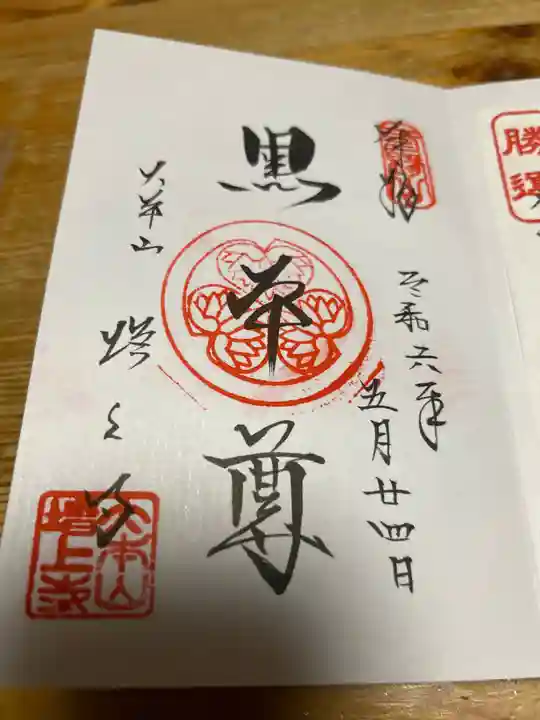 奉拝
令和六年
五月廿四日
黒本尊
大本山
増上寺
大本山
増上寺
勝運